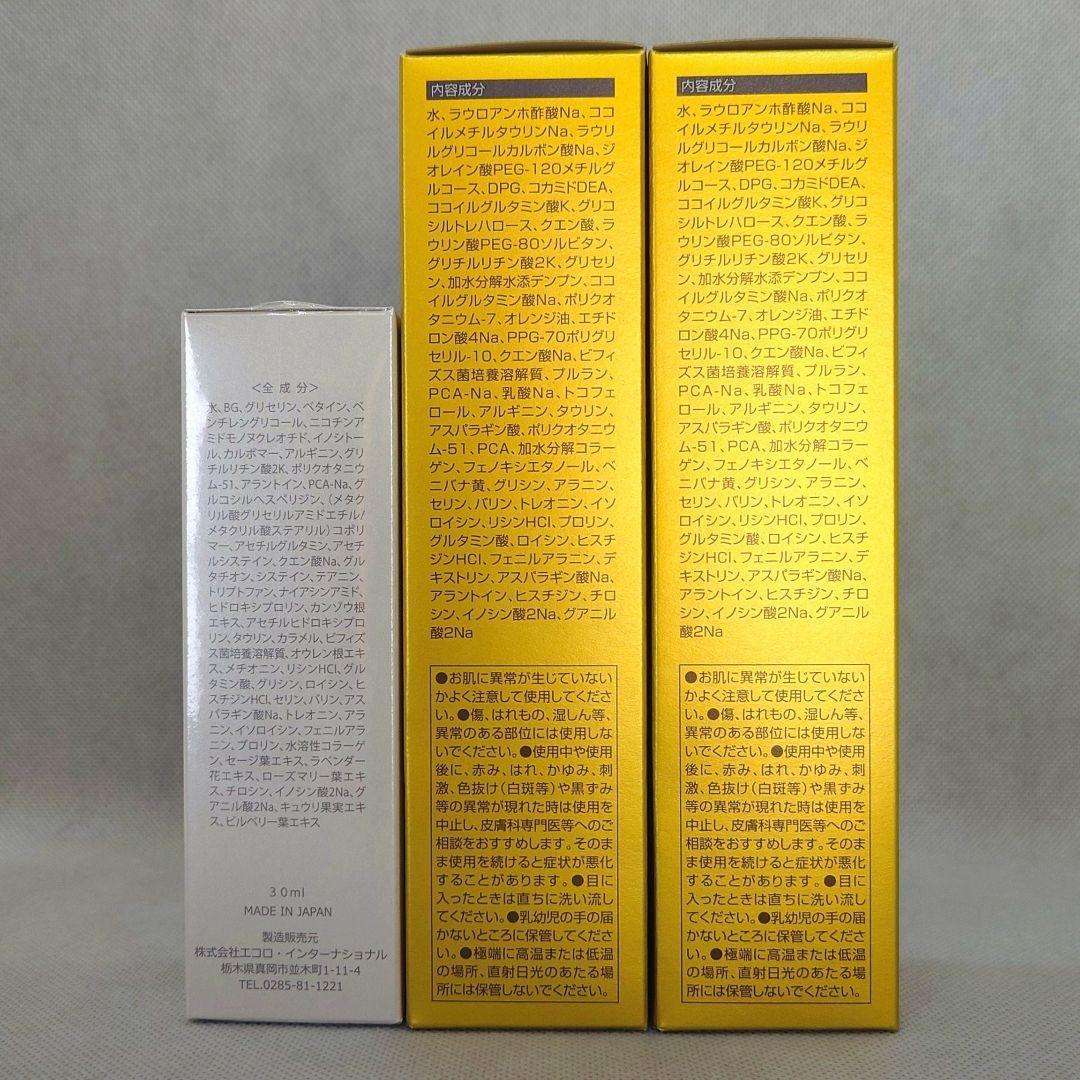 <全 成 分>
水、BG、グリセリン、ベタイン、ペ
ンチレングリコール、ニコチンア
ミドモノヌクレオチド、イノシトー
ル、カルボマー、アルギニン、グリ
チルリチン酸2K、ポリクオタニウ
ム-51、アラントイン、PCA-Na、グ
ルコシルヘスペリジン、(メタク
リル酸グリセリルアミドエチル/
メタクリル酸ステアリル)コポリ
マー、アセチルグルタミン、アセチ
ルシステイン、クエン酸Na、グル
タチオン、システイン、テアニン、
トリプトファン、ナイアシンアミド、
ヒドロキシプロリン、カンゾウ根
エキス、アセチルヒドロキシプロ
リン、タウリン、カラメル、ビフィズ
ス菌培養溶解質、オウレン根エキ
ス、メチオニン、リシンHCl、グル
タミン酸、グリシン、ロイシン、ヒ
スチジンHCl、セリン、バリン、アス
パラギン酸Na、トレオニン、アラ
ニン、イソロイシン、フェニルアラ
ニン、プロリン、水溶性コラーゲ
ン、セージ葉エキス、ラベンダー
花エキス、ローズマリー葉エキ
ス、チロシン、イノシン酸2Na、グ
アニル酸2Na、キュウリ果実エキ
ス、ビルベリー葉エキス
30ml
MADE IN JAPAN
製造販売元
株式会社エコロ・インターナショナル
栃木県真岡市並木町1-11-4
TEL.0285-81-1221
内容成分
水、ラウロアンホ酢酸Na、ココ
イルメチルタウリンNa、ラウリ
ルグリコールカルボン酸Na、ジ
オレイン酸PEG-120メチルグ
ルコース、DPG、コカミドDEA、
ココイルグルタミン酸K、グリコ
シルトレハロース、クエン酸、ラ
ウリン酸PEG-80ソルビタン、
グリチルリチン酸2K、グリセリ
ン、加水分解水添デンプン、ココ
イルグルタミン酸Na、ポリクオ
タニウム-7、オレンジ油、エチド
ロン酸4Na、PPG-70ポリグリ
セリル-10、クエン酸Na、ビフィ
ズス菌培養溶解質、プルラン、
PCA-Na、乳酸Na、トコフェ
ロール、アルギニン、タウリン、
アスパラギン酸、ポリクオタニウ
ム-51、PCA、加水分解コラー
ゲン、フェノキシエタノール、ベ
ニバナ黄、グリシン、アラニン、
セリン、バリン、トレオニン、イソ
ロイシン、リシンHCl、プロリン、
グルタミン酸、ロイシン、ヒスチ
ジンHCl、フェニルアラニン、デ
キストリン、アスパラギン酸Na、
アラントイン、ヒスチジン、チロ
シン、イノシン酸2Na、グアニル
酸2Na
●お肌に異常が生じていない
かよく注意して使用してくださ
い。●傷、はれもの、湿しん等、
異常のある部位には使用しな
いでください。●使用中や使用
後に、赤み、はれ、かゆみ、刺
激、色抜け(白斑等)や黒ずみ
等の異常が現れた時は使用を
中止し、皮膚科専門医等へのご
相談をおすすめします。そのま
ま使用を続けると症状が悪化
することがあります。●目に
入ったときは直ちに洗い流し
てください。●乳幼児の手の届
かないところに保管してくださ
い。●極端に高温または低温
の場所、直射日光のあたる場
所には保管しないでください。
内容成分
水、ラウロアンホ酢酸Na、ココ
イルメチルタウリンNa、ラウリ
ルグリコールカルボン酸Na、ジ
オレイン酸PEG-120メチルグ
ルコース、DPG、コカミドDEA、
ココイルグルタミン酸K、グリコ
シルトレハロース、クエン酸、ラ
ウリン酸PEG-80ソルビタン、
グリチルリチン酸2K、グリセリ
ン、加水分解水添デンプン、ココ
イルグルタミン酸Na、ポリクオ
タニウム-7、オレンジ油、エチド
ロン酸4Na、PPG-70ポリグリ
セリル-10、クエン酸Na、ビフィ
ズス菌培養溶解質、プルラン、
PCA-Na、乳酸Na、トコフェ
ロール、アルギニン、タウリン、
アスパラギン酸、ポリクオタニウ
ム-51、PCA、加水分解コラー
ゲン、フェノキシエタノール、ベ
ニバナ黄、グリシン、アラニン、
セリン、バリン、トレオニン、イソ
ロイシン、リシンHCl、プロリン、
グルタミン酸、ロイシン、ヒスチ
ジンHCl、フェニルアラニン、デ
キストリン、アスパラギン酸Na、
アラントイン、ヒスチジン、チロ
シン、イノシン酸2Na、グアニル
酸2Na
●お肌に異常が生じていない
かよく注意して使用してくださ
い。●傷、はれもの、湿しん等、
異常のある部位には使用しな
いでください。●使用中や使用
後に、赤み、はれ、かゆみ、刺
激、色抜け(白斑等)や黒ずみ
等の異常が現れた時は使用を
中止し、皮膚科専門医等へのご
相談をおすすめします。そのま
ま使用を続けると症状が悪化
することがあります。●目に
入ったときは直ちに洗い流し
てください。●乳幼児の手の届
かないところに保管してくださ
い。●極端に高温または低温
の場所、直射日光のあたる場
所には保管しないでください。